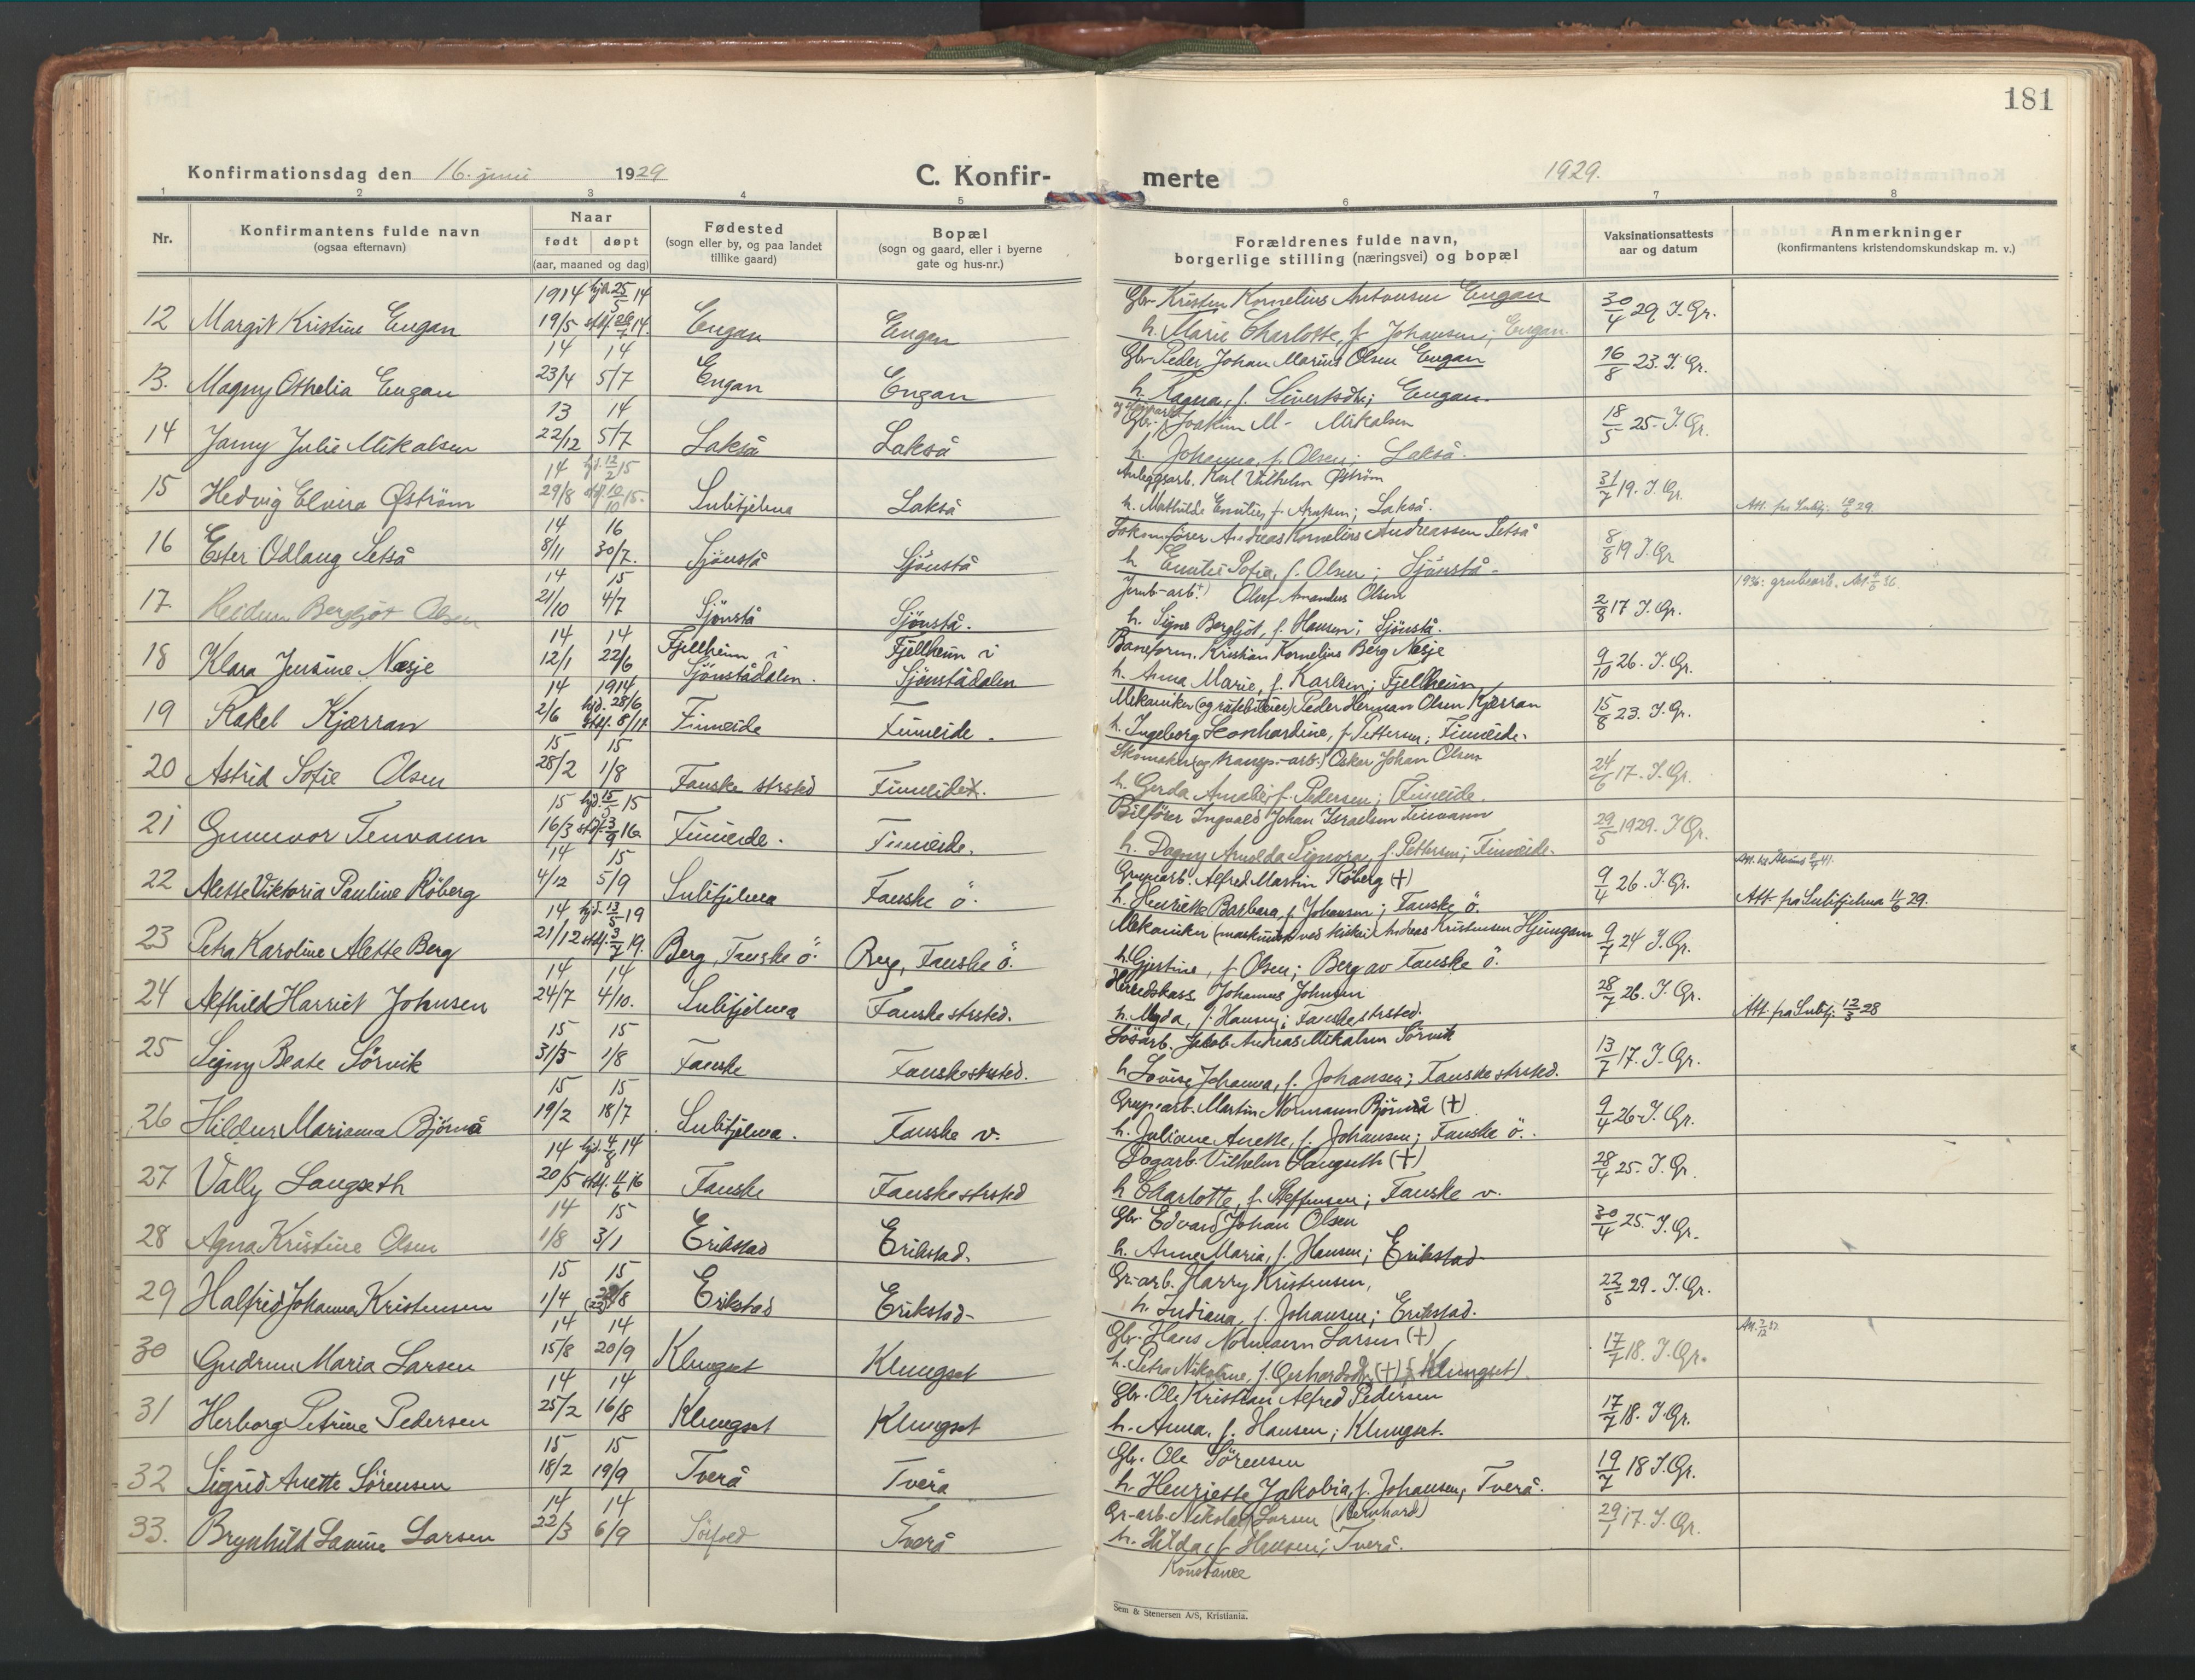 181
Konfirmationsdag den 16. juni 1929
C. Konfirmerte
1929.
1 2 3 4 5 6 7 8
Nr.
Konfirmantens fulde navn
(ogsaa efternavn)
Naar
født døpt
(aar, maaned og dag)
Fødested
(sogn eller by, og paa landet
tillike gaard)
Bopæl
(sogn og gaard, eller i byerne
gate og hus-nr.)
Forældrenes fulde navn,
borgerlige stilling (næringsvei) og bopæl
Vaksinationsattests
aar og datum
Anmerkninger
(konfirmantens kristendomskundskap m. v.)
12 Margit Kristine Engan 1914 19/5 hjd. 25/5 14 stdf. 26/7 14. Engan Engan
Gbr. Kristen Kornelius Antonsen Engan
h. Marie Charlotte, f. Johansen; Engan. 30/4 29 J. Gr.
13. Magny Othelia Engan 14 23/4 14 5/7 Engan Engan
Gbr. Peder Johan Marius Olsen Engan
h. Ragna, f. Sivertsdtr; Engan. 16/8 23. J. Gr.
14 Janny Julie Mikalsen 13 22/12 14 5/7 Lakså Lakså
Gbr. Joakim M- Mikalsen
h. Johanna, f. Olsen; Lakså. 18/5 25- J. Gr.
15 Hedvig Elvira Øström 14 29/8 hjd. 12/2 15 stdf. 10/10 15- Sulitjelma Lakså
Anleggsarb. Karl Vilhelm Øström
h. Mathilde Emilie, f. Arntsen; Lakså. 31/7 19. J. Gr. Att. fra Sulitj. 29.
16 Ester Odlaug Setså 14 8/11 16 30/7. Sjönstå Sjönstå
Lokomfører Andreas Kornelius Andreassen Setså
h. Emilie Sofie, f. Olsen; Sjönstå- 8/8 19 J. Gr
17. Heidrun Bergljot Olsen 14 21/10 15 4/7 Sjönstå Sjönstå.
Jernb-arb. Oluf Amandus Olsen
h. Signe Bergljot, f. Hansen; Sjönstå. 2/8 17 J. Gr. 1936: grubearb.
18 Klara Jensine Nesje 14 12/1 14 22/6 Fjellheim i Sjönstådalen. Fjellheim i Sjönstådalen
Baneform. Kristian Kornelius Berg Nesje
h. Anna Marie, f. Karlsen; Fjellheim 9/10 26. J. Gr.
19 Rakel Kjærran 14 2/6 1914 hjd. 28/6 stdf. 8/11 Finneide Finneide.
Mekaniker Peder Herman Olsen Kjærran
h. Ingeborg Leonhardine, f. Pettersen; Finneide. 15/8 23. J. Gr.
20 Astrid Sofie Olsen 15 28/2 15 1/8 Fauske strsted Finneidet.
Skomaker (og transp.-arb.) Oskar Johan Olsen
h. Gerda Amalie, f. Pedersen; Finneide. 24/6 17. J. Gr.
21 Gunnvor Tenvann 15 16/3 hjd. 15/5 15 stdf. 3/9 16 Finneide. Finneide.
Bilfører Ingvald Johan Israelsen Tenvann
h. Dagny Arnolda Signora, f. Pettersen; Finneide. 29/5 1929. J Gr.
22 Alette Viktoria Pauline Röberg 14 4/12 15 5/9 Sulitjelma Fauske ö.
Grupearb. Alfred Martin Röberg (+)
h. Henriette Barbara, f. Johansen; Fauske ö. 9/4 26. J. Gr. Att. fra Sulitjelma 11/6 29.
23 Petra Karoline Alette Berg 14 21/12 hjd. 13/5 19 stdf. 3/7 19. Berg, Fauske ö. Berg, Fauske ö.
Mekaniker Andreas Kristensen Hjemgam
h. Gjertine, f. Olsen; Berg av Fauske ö. 9/7 24 J. Gr.
24 Alfhild Harriet Johnsen 14 24/7 14 4/10. Sulitjelma Fauske strsted.
Herredskass. Johannes Johnsen
h. Magda, f. Hansen; Fauske strsted. 28/7 26. J. Gr. Att. fra Sulitj. 12/3 28
25 Signy Beate Sörvik 15 31/3 15 1/8 Fauske Fauske strsted.
Løsarb. Jakob Andreas Mikalsen Sörvik
h. Lovise Johanna, f. Johansen; Fauske strsted. 13/7 17. J. Gr.
26 Hildur Marianna Björnå 15 19/2 15 18/7 Sulitjelma. Fauske v.
Grupearb. Martin Normann Björnå (+)
h. Juliane Anette, f. Johansen; Fauske ö. 9/4 26- J. Gr.
27 Vally Langseth 14 20/5 hjd. 4/8 14 stdf. 4/6 16 Fauske Fauske strsted
Dagarb. Vilhelm Langseth (+)
h. Charlotte, f. Steffensen; Fauske v. 28/4 25. J. Gr.
28 Agna Kristine Olsen 14 1/8 15 3/1 Erikstad Erikstad.
Gbr. Edvard Johan Olsen
h. Anne Maria, f. Hansen; Erikstad. 30/4 25. J. Gr.
29 Halfrid Johanna Kristensen 15 1/4 15 (22) 22/8 Erikstad Erikstad-
Gr.-arb. Harry Kristensen,
h. Indiana, f. Johansen; Erikstad. 22/5 29. J. Gr.
30 Gudrun Maria Larsen 14 15/8 14 20/9 Klungset Klungset
Gbr. Hans Normann Larsen (+)
h. Petra Nikoline, f. Gerhardsd. (+) (Klungset) 17/7 18. J. Gr.
31 Herborg Petrine Pedersen 14 25/2 14 16/8 Klungset Klungset
Gbr. Ole Kristian Alfred Pedersen
h. Anna, f. Hansen; Klungset. 17/7 18. J. Gr.
32 Sigrid Anette Sörensen 15 18/2 15 19/9 Tverå Tverå
Gbr. Ole Sörensen
h. Henriette Jakobia, f. Johansen, Tverå. 19/7 18 J. Gr.
33. Brynhild Lovine Larsen 14 22/3 14 6/9 Sörfold Tverå
Gr-arb. Nikolai Larsen (Bernhard)
h. Hilda, f. Hansen; Tverå. 29/1 17. J. Gr.
Konstance
Sem & Stenersen A/S, Kristiania.